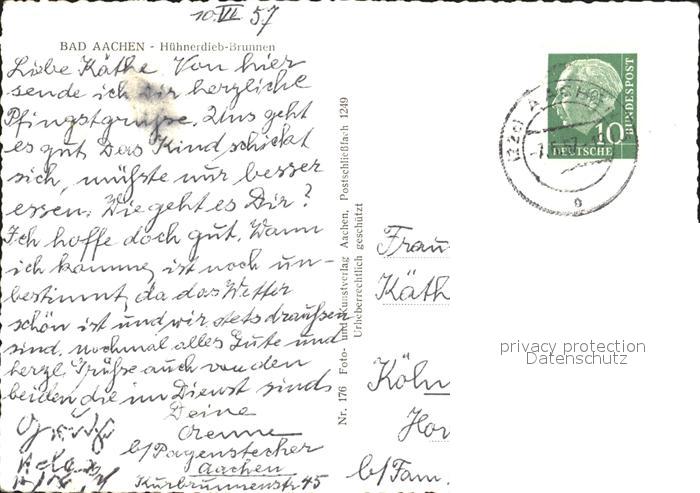 10.VII 57
BAD AACHEN - Hühnerdieb-Brunnen
Liebe Käthe. Von hier
sende ich Dir herzliche
Pfingstgrüsse. Uns geht
es gut. Das Kind schickt
sich, müsste nur besser
essen. Wie geht es Dir?
Ich hoffe doch gut. Wann
ich komme, ist noch un-
bestimmt, da das Wetter
schön ist und wir stets draußsen
sind. nochmal alles Gute und
herzl. Grüße auch von den
beiden die im Dienst sind.
Deine
b/Pagenstecher
Aachen
Kurbrunnenstr 45
Nr. 176 Foto- und Kunstverlag Aachen, Postschließfach 1249
Urheberrechtlich geschützt
AACHEN
10
DEUTSCHE
BUNDESPOST
Frau
Käth
Köln
Hor
b/Fam.
privacy protection
Datenschutz